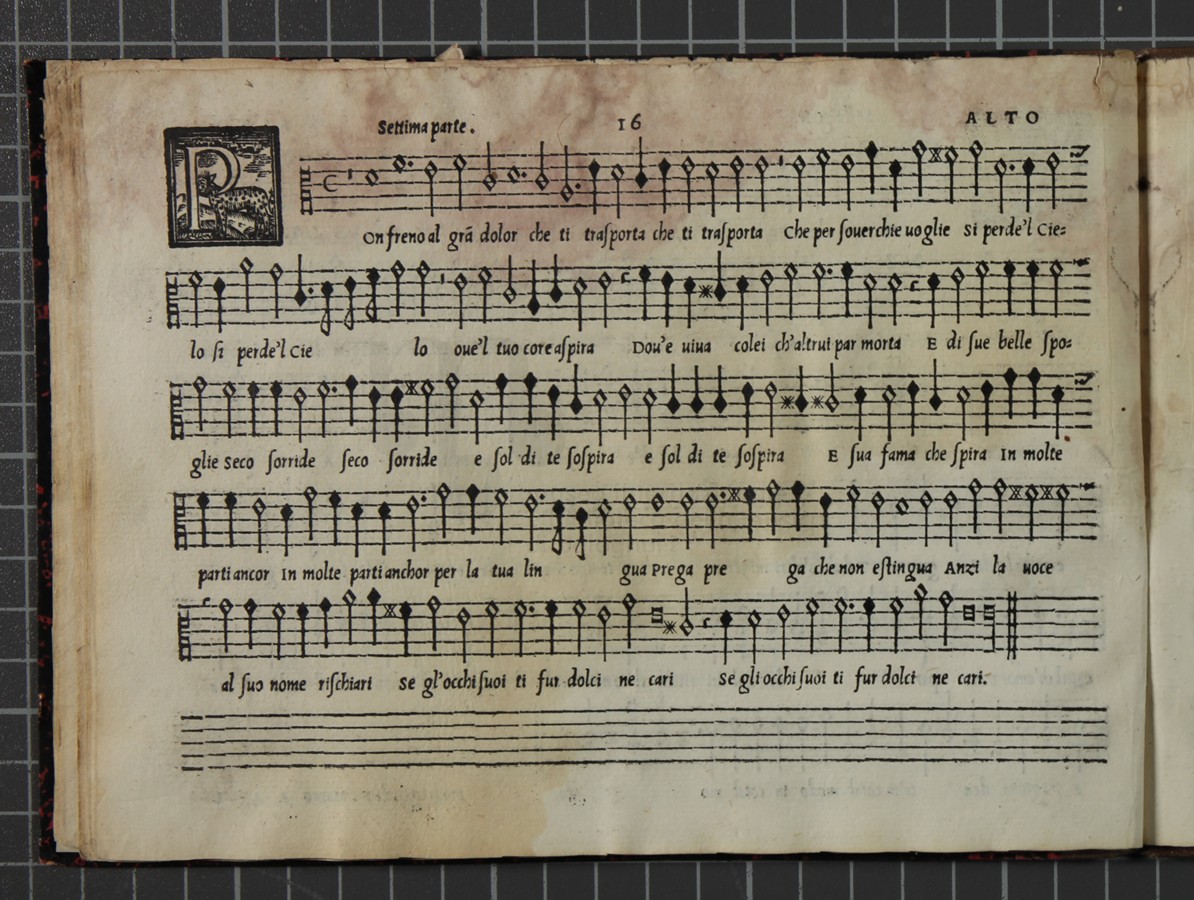 Settima parte. 16 ALTO
POn freno al grã dolor che ti traſporta che ti traſporta Che per ſouerchie uoglie Si perde'l Cie=
lo ſi perde'l Cie lo oue'l tuo core aſpira Dou'e uiua colei ch'altrui par morta E di ſue belle ſpo=
glie Seco ſorride ſeco ſorride e ſol di te ſoſpira e ſol di te ſoſpira E ſua fama che ſpira In molte
parti ancor In molte parti anchor per la tua lin gua Prega pre ga che non eſtingua Anzi la uoce
al ſuo nome riſchiari Se gl'occhi ſuoi ti fur dolci ne cari Se gli occhi ſuoi ti fur dolci ne cari.